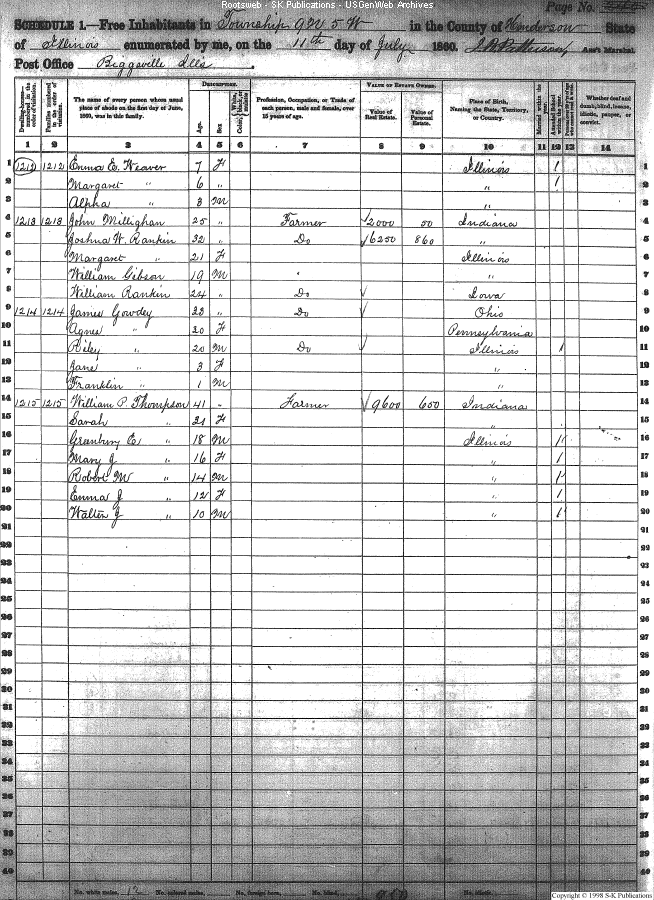 Rootsweb - S-K Publications - USGenWeb Archives
Page No.
SCHEDULE 1.—Free Inhabitants in Township 9 N 5 W in the County of Henderson State
of Illinois enumerated by me, on the 11th day of July 1860. Ass't Marshal.
Post Office Biggsville Ills.
DESCRIPTION. VALUE OF ESTATE OWNED.
Dwelling-houses numbered in the order of visitation. Families numbered in the order of visitation. The name of every person whose usual place of abode on the first day of June, 1860, was in this family. Age. Sex. Color, White, black, or mulatto. Profession, Occupation, or Trade of each person, male and female, over 15 years of age. Value of Real Estate. Value of Personal Estate. Place of Birth, Naming the State, Territory, or Country. Married within the year. Whether deaf and dumb, blind, insane, idiotic, pauper, or convict.
1 2 3 4 5 6 7 8 9 10 11 12 13 14
1 1212 1212 Emma E. Weaver 7 F Illinois 1 1
2 Margaret " 6 " " 1 2
3 Alpha " 3 M " 3
4 1213 1213 John Millighan 25 " Farmer 2000 50 Indiana 4
5 Joshua W. Rankin 32 " Do 6250 860 " 5
6 Margaret " 21 F Illinois 6
7 William Gibson 19 M " " 7
8 William Rankin 24 " Do Iowa 8
9 1214 1214 James Gowdey 23 " Do Ohio 9
10 Agnes " 20 F Pennsylvania 10
11 Riley " 20 M Do Illinois 1 11
12 Jane " 3 F " 12
13 Franklin " 1 M " 13
14 1215 1215 William P. Thompson 41 " Farmer 9600 650 Indiana 14
15 Sarah " 21 F " 15
16 Granbury E " 18 M Illinois 1 16
17 Mary J " 16 F " 1 17
18 Robert M " 14 M " 1 18
19 Emma J " 12 F " 1 19
20 Walter J " 10 M " 1 20
21 21
22 22
23 23
24 24
25 25
26 26
27 27
28 28
29 29
30 30
31 31
32 32
33 33
34 34
35 35
36 36
37 37
38 38
39 39
40 40
No. white males, 12 No. colored males, No. foreign born, No. blind, No. idiotic,
Copyright © 1998 S-K Publications